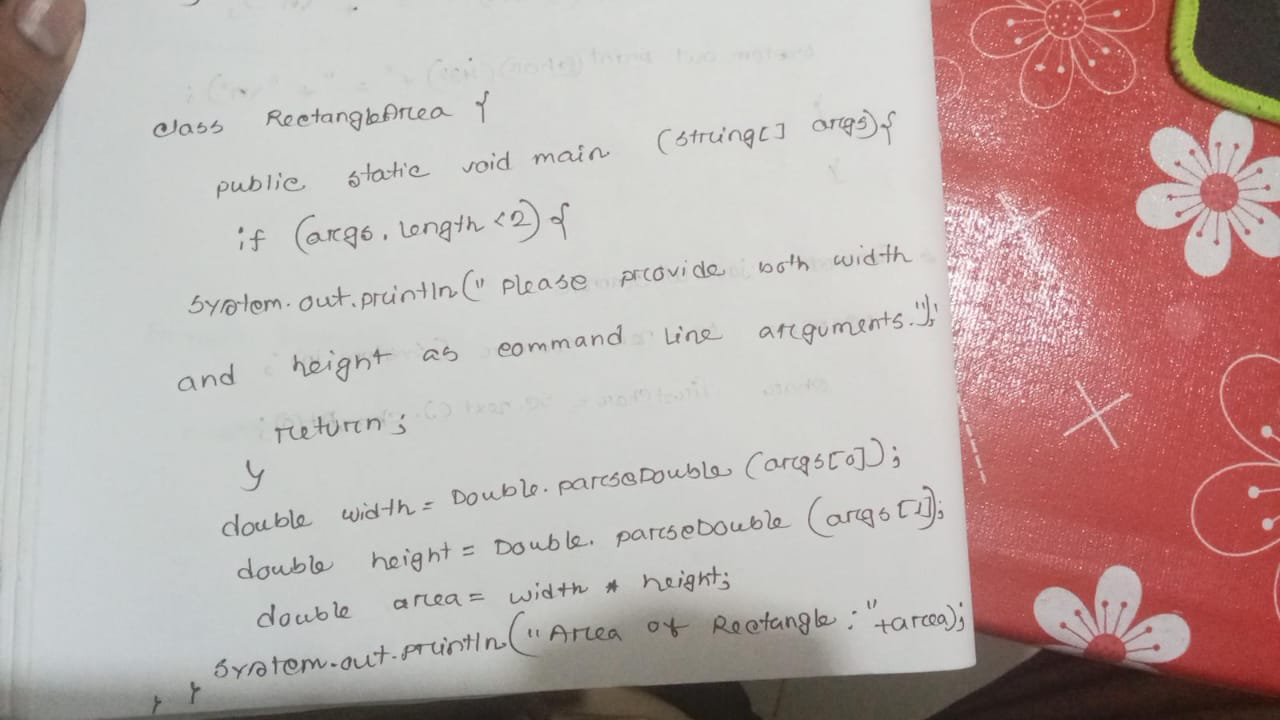 class RectangleArea {
public static void main (string[] args){
if (args.length <2) {
System.out.println(" please provide both width
and height as command line arguments.");
return;
}
double width = Double.parseDouble (args[0]);
double height = Double. parseDouble (args[1]);
double area = width * height;
System.out.println("Area of Rectangle : "+area);
} }